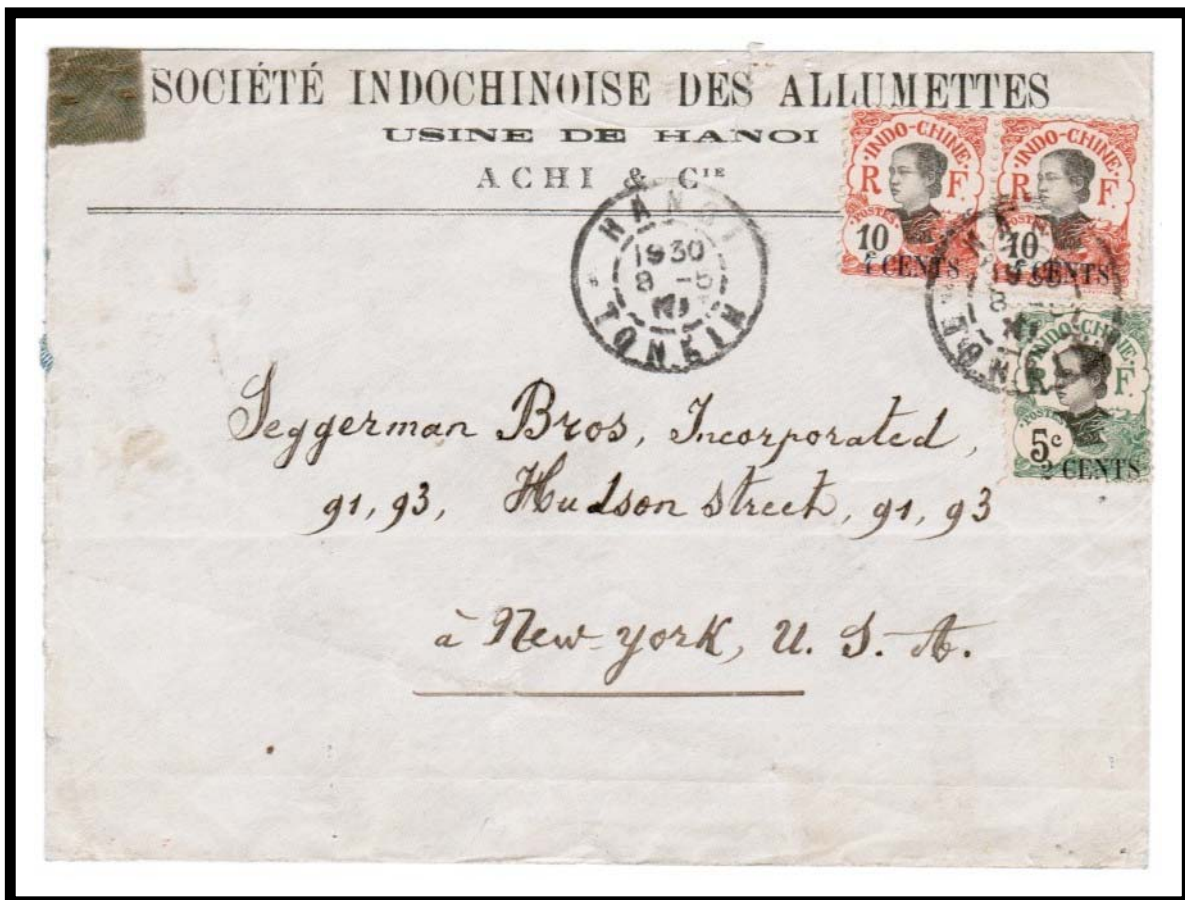 SOCIÉTÉ INDOCHINOISE DES ALLUMETTES
USINE DE HANOI
ACHI & CIE
INDO-CHINE
R F
POSTES
10
4 CENTS
INDO-CHINE
R F
POSTES
10
4 CENTS
HANOI
1930
8 -5
TONKIN
INDO-CHINE
R F
POSTES
5c
2 CENTS
Seggerman Bros, Incorporated,
91, 93, Hudson street, 91, 93
à New-york, U. S. A.